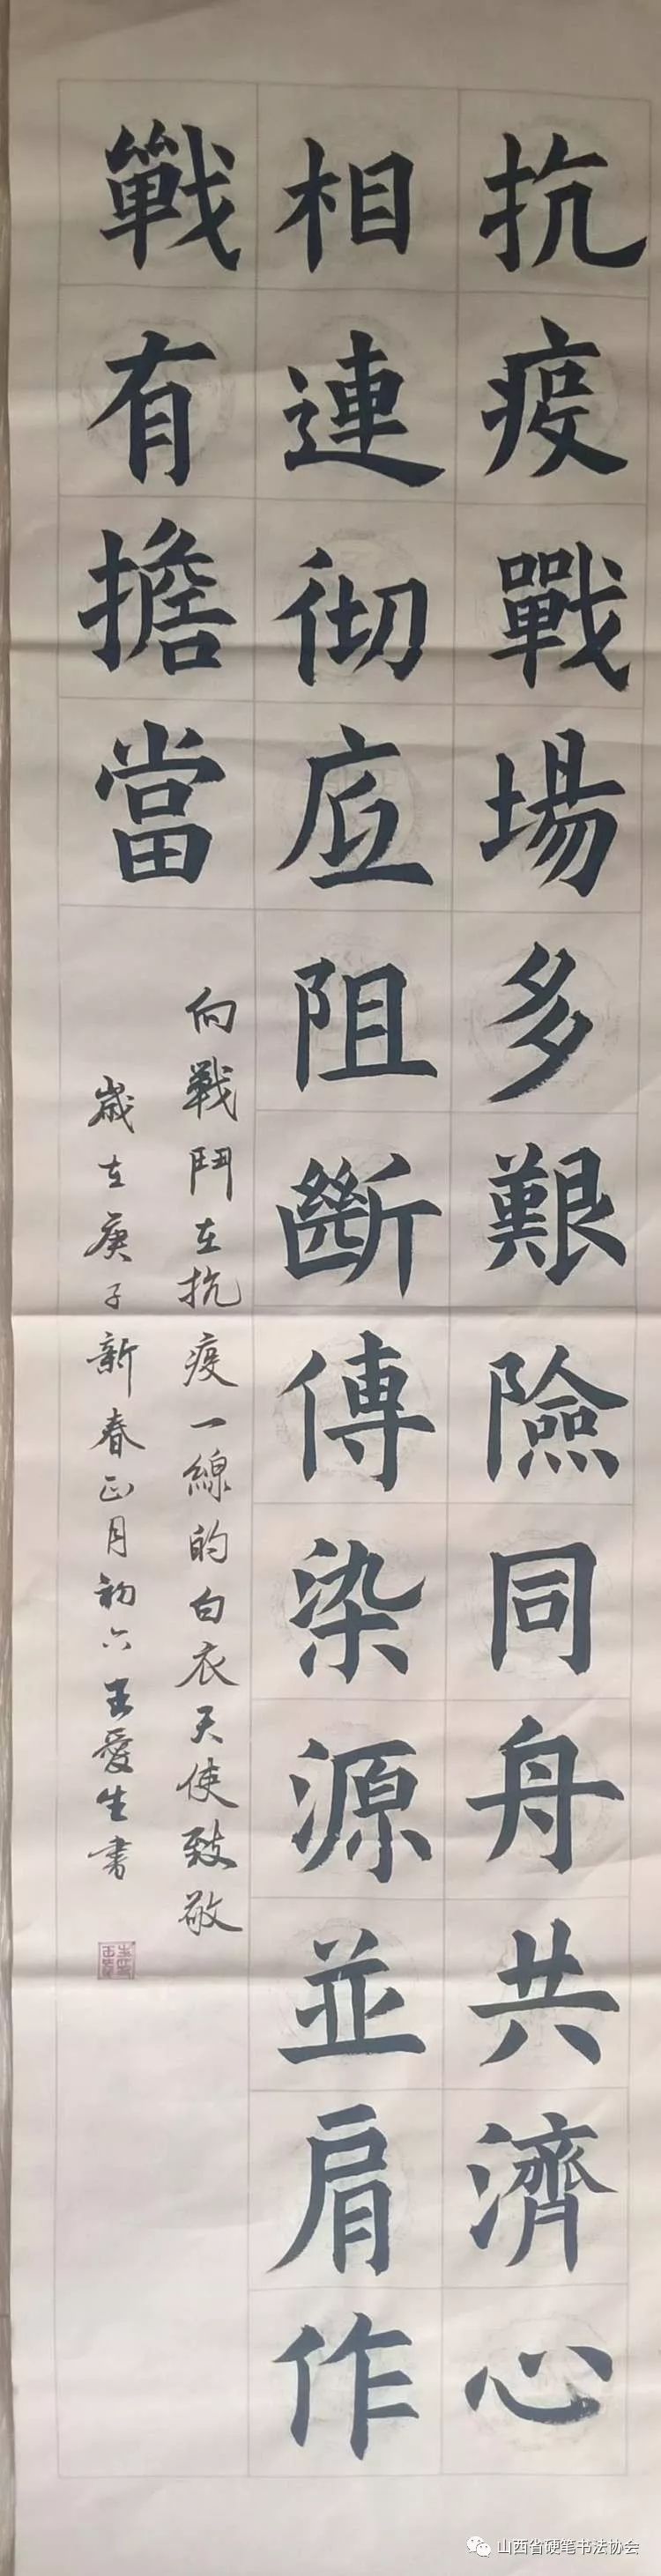 抗疫戰場多艱險同舟共濟心
相連彻底阻斷傳染源並肩作
戰有擔當
向戰鬥在抗疫一線的白衣天使致敬
歲在庚子新春正月初六王愛生書
山西省硬笔书法协会